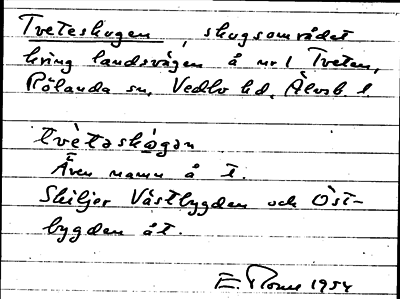 Tveteskogen, skogsområdet
kring landsvägen å nr 1 Tveten,
Rölanda sn, Vedbo hd, Älvsb l
tvètaskògan
Även namn å t.
Skiljer Västbygden och Öst-
bygden åt.
E. 1954